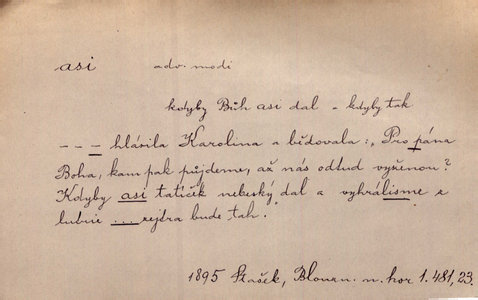 asi adv. modi
kdyby Bůh asi dal - kdyby tak
--- hlásila Karolina a bědovala: „Pro pána
Boha, kam pak půjdeme, až nás odtud vyženou?
Kdyby asi tatíček nebeský dal a vyhrálisme s
... bude tah.
1895 Stašek, Blouzn. n. hor 1.481,23.